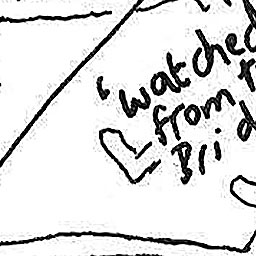 'watched
from t
Brid